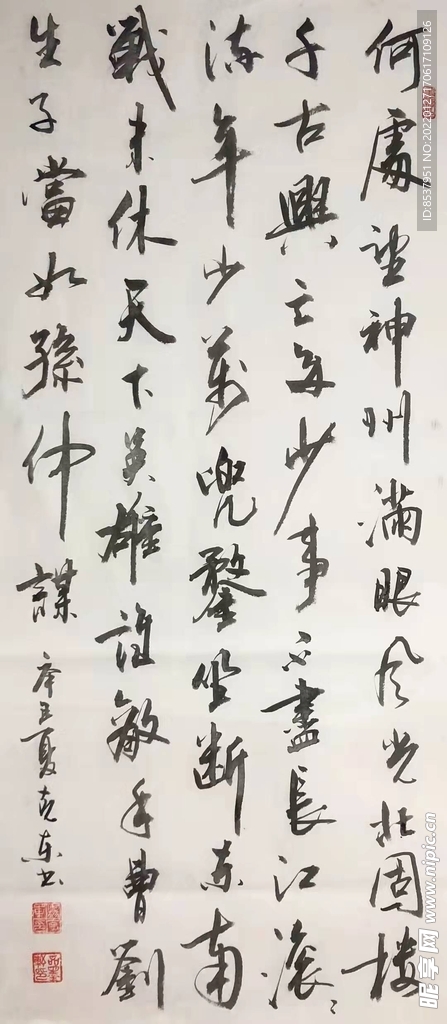 何處望神州滿眼風光北固樓
千古興亡多少事不盡長江滾〻
流年少萬兜鍪坐斷东南
戰未休天下英雄誰敵手曹劉
生子當如孫仲謀
辛丑夏克东书
ID:8537951 NO:20220127170617109126
昵享网 www.nipic.cn